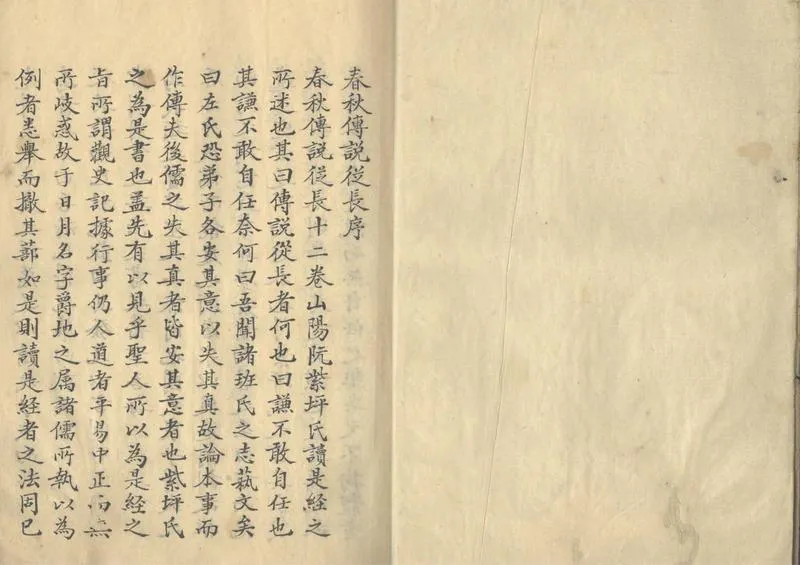 春秋傳説從長序
春秋傳説從長十二卷山陽阮紫坪氏讀是經之
所述也其曰傳説從長者何也曰謙不敢自任也
其謙不敢自任奈何曰吾聞諸班氏之志蓺文矣
曰左氏恐弟子各安其意以失其真故論本事而
作傳夫後儒之失其真者皆安其意者也紫坪氏
之為是書也盖先有以見乎聖人所以為是經之
旨所謂觀史記據行事仍人道者平易中正而無
所歧惑故于日月名字爵地之属諸儒所執以為
例者悉舉而撤其蔀如是則讀是經者之法固已